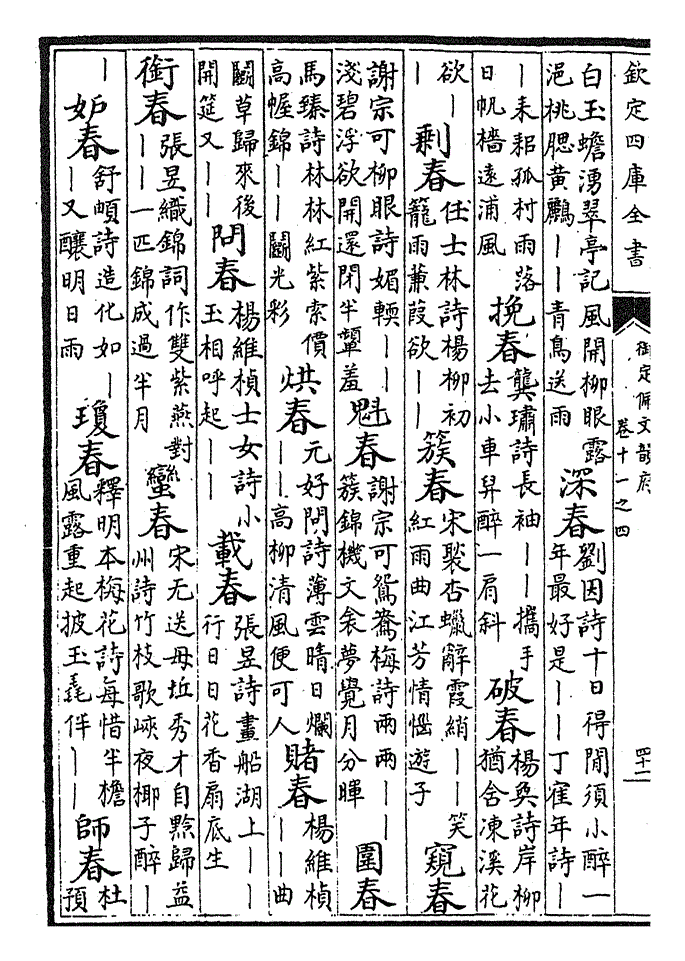 欽定四庫全書
御定佩文韻府
卷十一之四
四十二
白玉蟾湧翠亭記風開柳眼露
浥桃腮黃鸝｜｜青鳥送雨
深春
劉因詩十日得閒須小醉一
年最好是｜｜丁隺年詩｜
｜耒耜孤村雨落
日帆檣遠浦風
挽春
龔璛詩長袖｜｜攜手
去小車舁醉一肩斜
破春
楊奐詩岸柳
猶含凍溪花
欲｜
剩春
任士林詩楊柳初
籠雨蒹葭欲｜｜
簇春
宋褧杏蠟辭霞綃｜｜笑
紅雨曲江芳情惱遊子
窺春
謝宗可柳眼詩媚輭｜｜
淺碧浮欲開還閉半顰羞
魁春
謝宗可鴛鴦梅詩兩兩｜｜
簇錦機文衾夢覺月分暉
圍春
馬臻詩林林紅紫索價
高幄錦｜｜鬬光彩
烘春
元好問詩薄雲晴日爛
｜｜高柳清風便可人
賭春
楊維楨
｜｜曲
鬬草歸來後
開筵又｜｜
問春
楊維楨士女詩小
玉相呼起｜｜
載春
張昱詩畫船湖上｜｜
行日日花香扇底生
銜春
張昱織錦詞作雙紫燕對
｜｜一匹錦成過半月
蠻春
宋无送毋丘秀才自黔歸益
州詩竹枝歌峽夜椰子醉｜
｜
妒春
舒頔詩造化如｜
｜又釀明日雨
瓊春
釋明本梅花詩每惜半檐
風露重起披玉毳伴｜｜
師春
杜
預